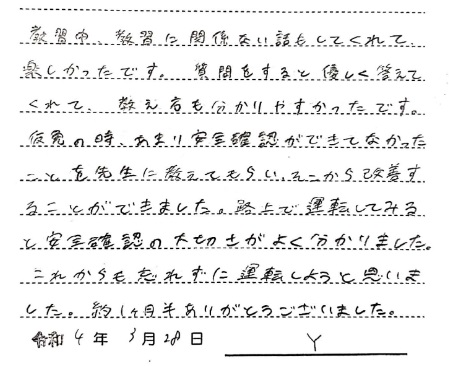 教習中、教習に関係ない話もしてくれて、
楽しかったです。 質問をすると優しく答えて
くれて、教え方も分かりやすかったです。
仮免の時、あまり安全確認ができてなかった
ことを先生に教えてもらい、そこから改善す
ることができました。路上で運転してみる
と安全確認の大切さがよく分かりました。
これからも忘れずに運転しようと思いま
した。約1ヶ月半ありがとうございました。
令和 4 年 3 月 28 日 Y